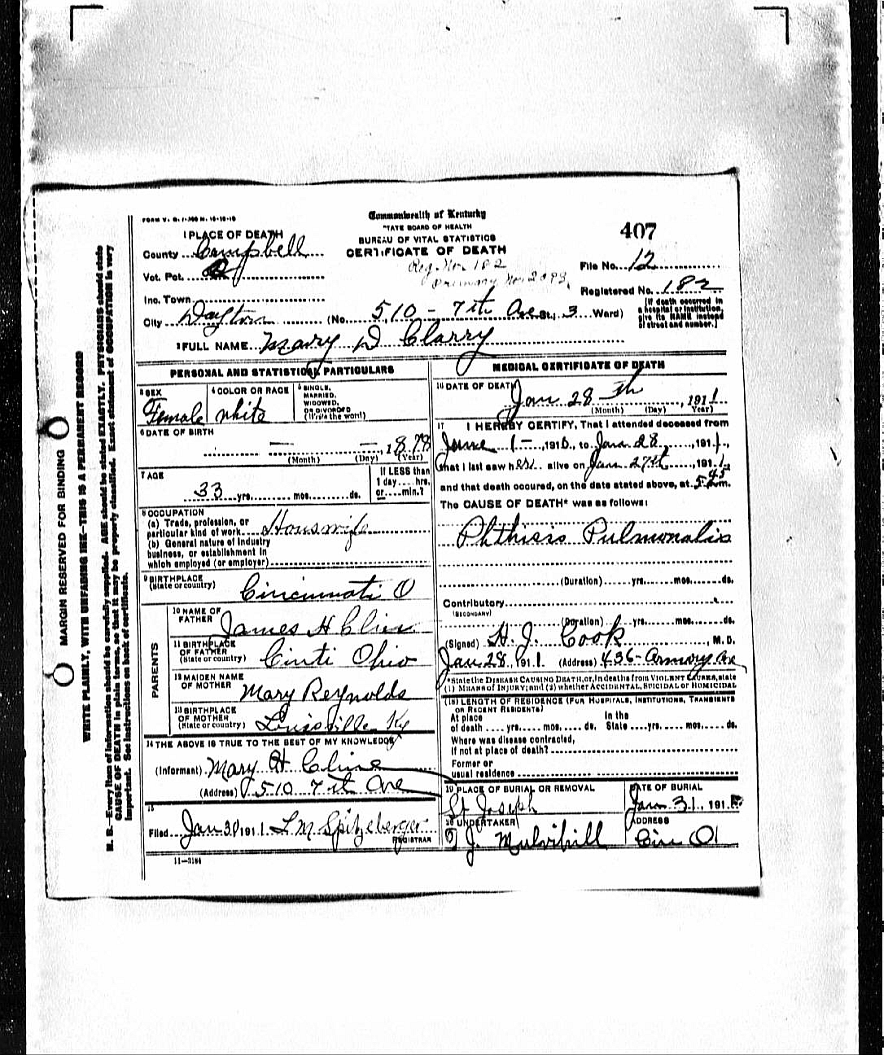 FORM V. S. 1-
Commonwealth of Kentucky
TATE BOARD OF HEALTH
BUREAU OF VITAL STATISTICS
CERTIFICATE OF DEATH
407
1 PLACE OF DEATH
County Campbell
Vot. Pct.
Reg. No. 182
Primary No. 2093
File No. 12
Registered No. 182
Inc. Town
City Dayton (No. 510 - 7th Ave St.; 3 Ward)
[If death occurred in a hospital or institution, give its NAME instead of street and number.]
2 FULL NAME Mary D Clarry
PERSONAL AND STATISTICAL PARTICULARS
3 SEX
Female
4 COLOR OR RACE
White
5 SINGLE, MARRIED, WIDOWED, OR DIVORCED (Write the word)
6 DATE OF BIRTH
— — 1878
(Month) (Day) (Year)
7 AGE
33 yrs. mos. ds.
If LESS than 1 day hrs. or min.?
8 OCCUPATION
(a) Trade, profession, or particular kind of work Houswife
(b) General nature of industry business, or establishment in which employed (or employer)
9 BIRTHPLACE
(State or country) Cincinnati O
PARENTS
10 NAME OF FATHER James H Cline
11 BIRTHPLACE OF FATHER (State or country) Cinti Ohio
12 MAIDEN NAME OF MOTHER Mary Reynolds
13 BIRTHPLACE OF MOTHER (State or country) Louisville Ky
14 THE ABOVE IS TRUE TO THE BEST OF MY KNOWLEDGE
(Informant) Mary H Cline
(Address) 510 7th Ave
15
Filed Jan 30 1911 L M Spitzeberger
REGISTRAR
11—3184
MEDICAL CERTIFICATE OF DEATH
16 DATE OF DEATH
Jan 28th, 1911
(Month) (Day) (Year)
17 I HEREBY CERTIFY, That I attended deceased from
June 1—, 1910, to Jan 28, 1911,
that I last saw her alive on Jan 27th, 1911,
and that death occured, on the date stated above, at 5 45 m.
The CAUSE OF DEATH* was as follows:
Phthisis Pulmonalis
(Duration) yrs. mos. ds.
Contributory
(SECONDARY)
(Duration) yrs. mos. ds.
(Signed) H. J. Cook, M. D.
Jan 28, 1911 (Address) 436 Armory Av
*State the DISEASE CAUSING DEATH, or, in deaths from VIOLENT CAUSES, state
(1) MEANS OF INJURY; and (2) whether ACCIDENTAL, SUICIDAL or HOMICIDAL
(18) LENGTH OF RESIDENCE (FOR HOSPITALS, INSTITUTIONS, TRANSIENTS
OR RECENT RESIDENTS)
At place of death yrs. mos. ds. In the State yrs. mos. ds.
Where was disease contracted,
if not at place of death?
Former or
usual residence
19 PLACE OF BURIAL OR REMOVAL
St Joseph
DATE OF BURIAL
Jan 31, 191
20 UNDERTAKER
T J. Mulvihill
ADDRESS
Cin O
MARGIN RESERVED FOR BINDING
WRITE PLAINLY, WITH UNFADING INK—THIS IS A PERMANENT RECORD
N. B.—Every item of information should be carefully supplied. AGE should be stated EXACTLY. PHYSICIANS should state
CAUSE OF DEATH in plain terms, so that it may be properly classified. Exact statement of OCCUPATION is very
important. See instructions on back of certificate.